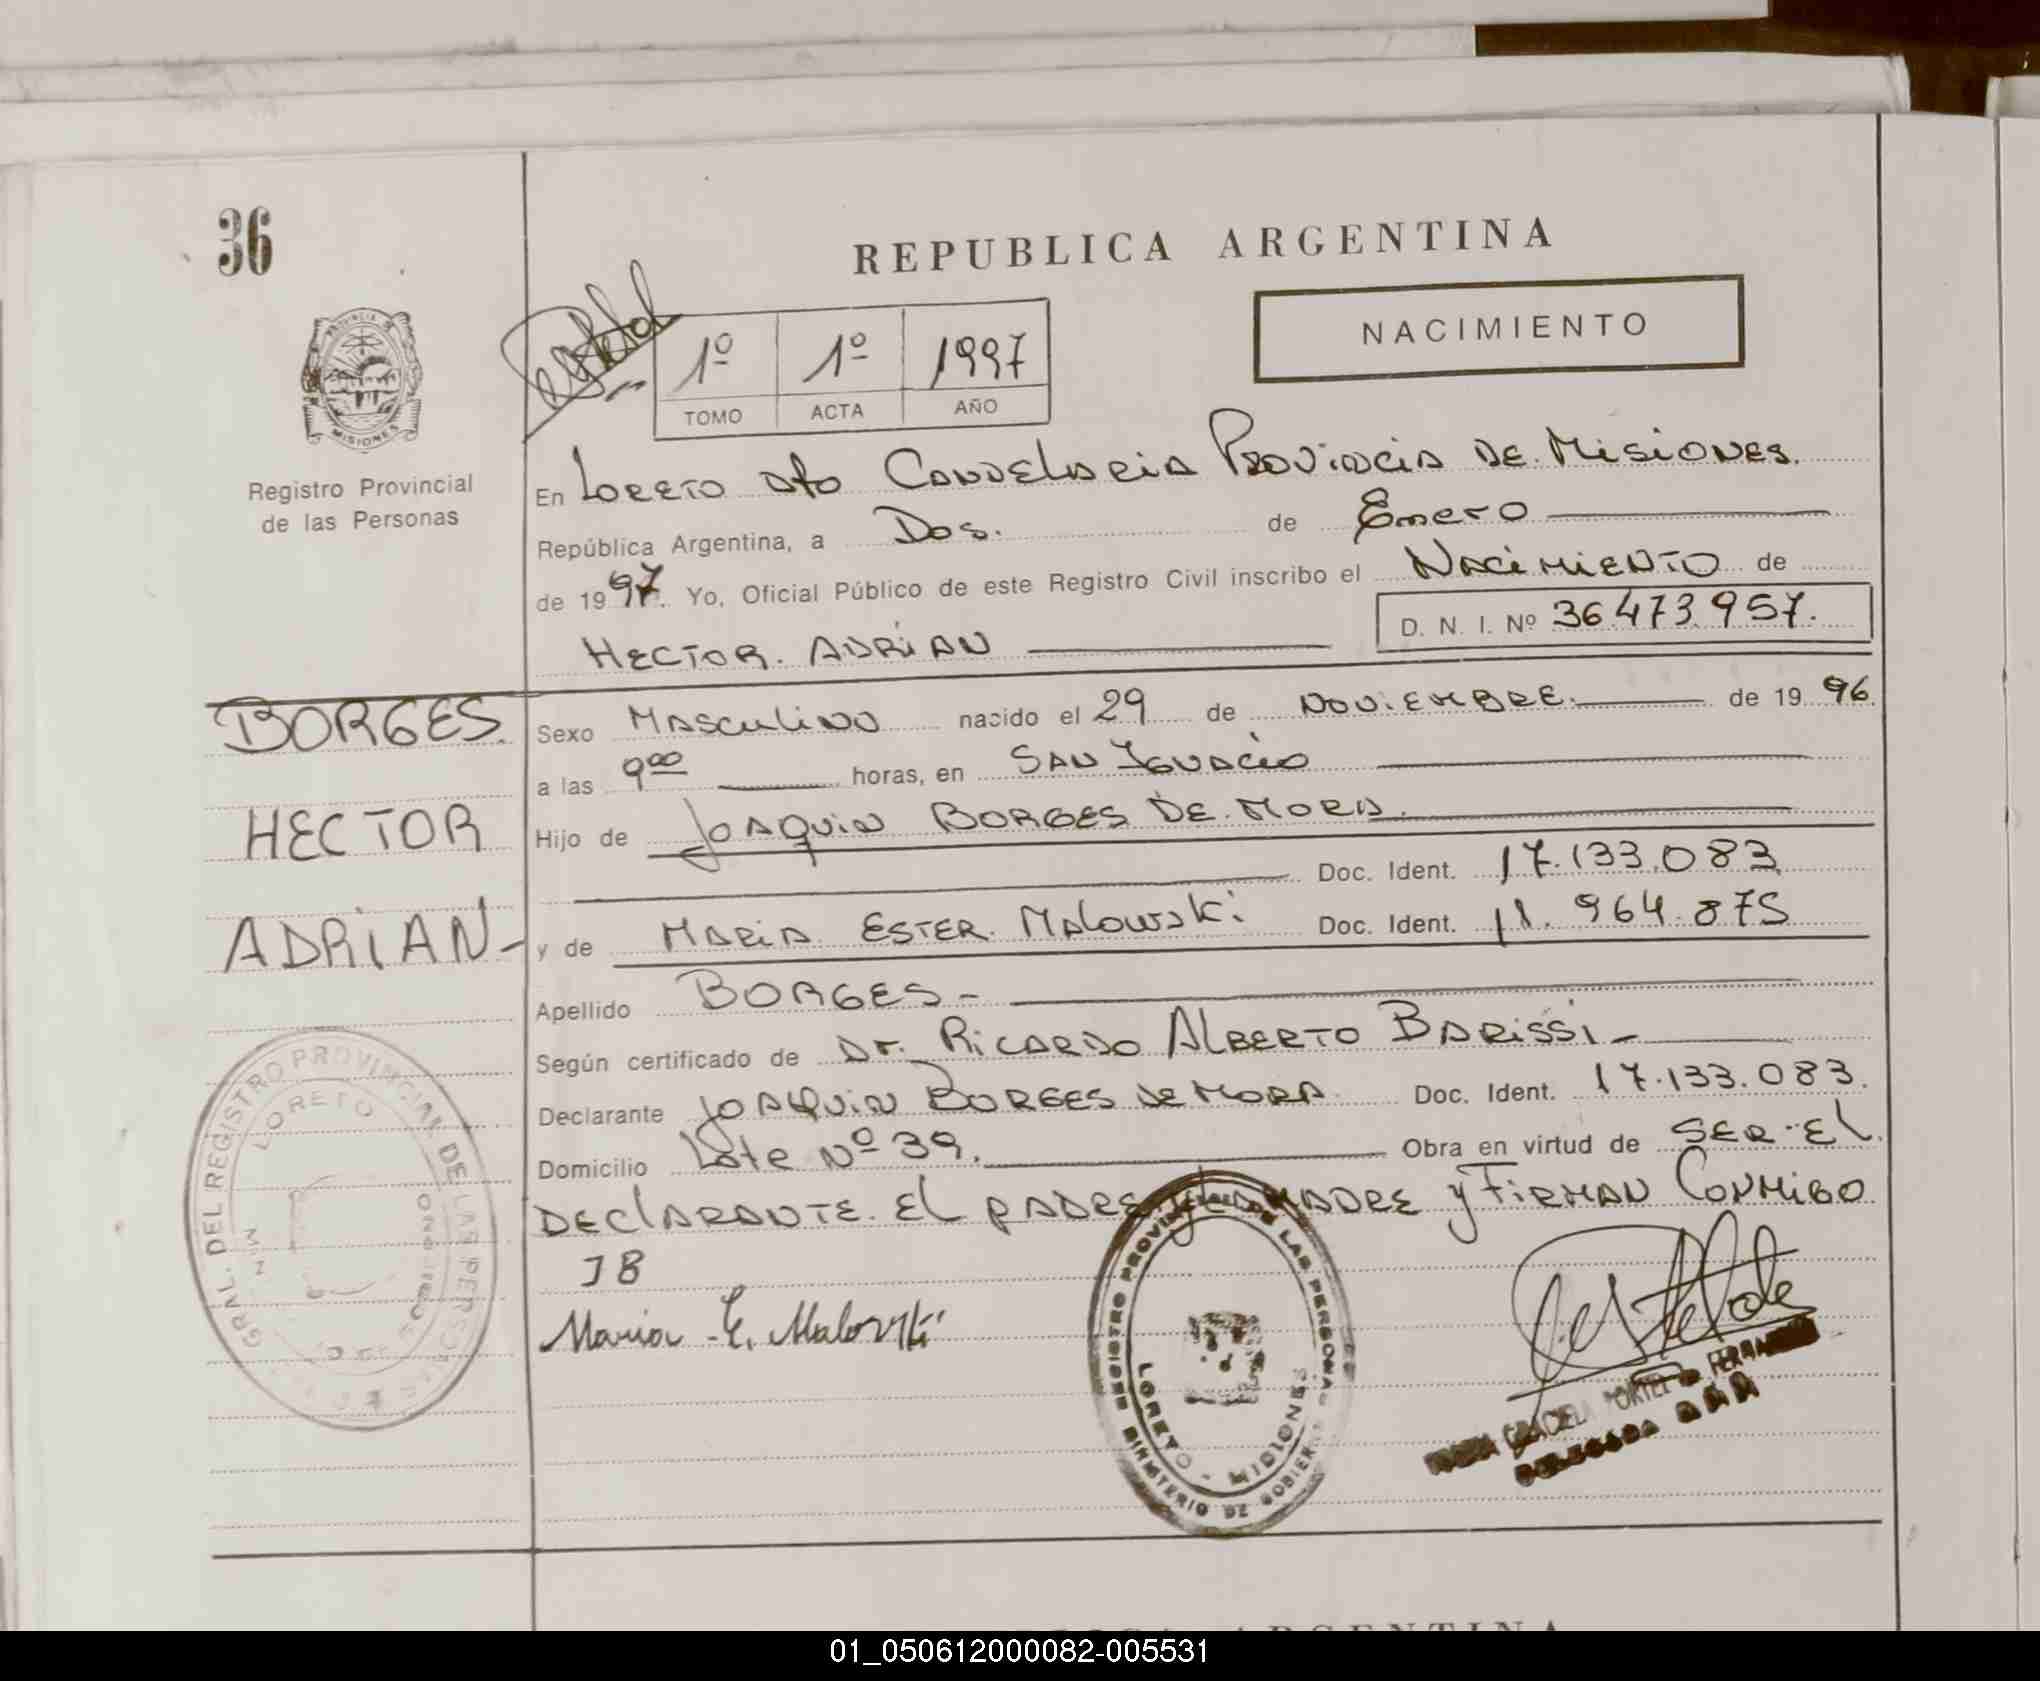 36
REPUBLICA ARGENTINA
PROVINCIA DE
MISIONES
1º 1º 1997
TOMO ACTA AÑO
NACIMIENTO
Registro Provincial
de las Personas
En Loreto dto Candelaria Provincia de Misiones.
República Argentina, a Dos. de Enero
de 1997. Yo, Oficial Público de este Registro Civil inscribo el Nacimiento de
D. N. I. Nº 36.473.957.
Hector. Adrian
BORGES.
HECTOR
ADRIAN-
Sexo Masculino nacido el 29 de Noviembre. de 1996.
a las 9 00 horas, en San Ignacio
Hijo de Joaquin Borges de Mora.
Doc. Ident. 17.133.083
y de Maria Ester. Malowski Doc. Ident. 11.964.875
Apellido Borges-
Según certificado de Dr. Ricardo Alberto Barissi-
Declarante Joaquin Borges de Mora Doc. Ident. 17.133.083.
Domicilio Lote Nº 39. Obra en virtud de ser el
declarante. el padre y la madre y firman Conmigo
JB
Maria E. Malowski
GRAL. DEL REGISTRO PROVINCIAL DE LAS PERSONAS
LORETO
REGISTRO PROVINCIAL DE LAS PERSONAS
MINISTERIO DE GOBIERNO
LORETO - MISIONES
GRACIELA
DELEGADA